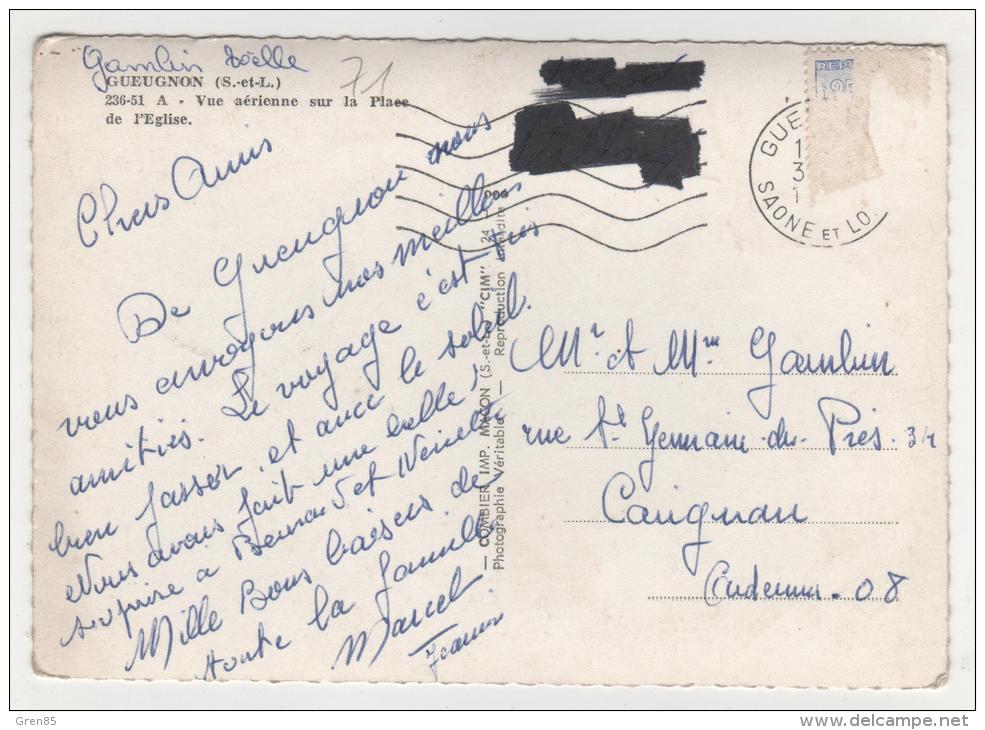 Gamblin Joëlle
71
GUEUGNON (S.-et-L.)
236-51 A - Vue aérienne sur la Place
de l'Eglise.
Chers Amis
De Gueugnon nous
vous envoyons nos meilleures
amitiés. Le voyage c'est très
bien passer, et avec le soleil.
Nous avons fait une belle
surprise à Bernard et
Mille Bons baisers de
toute la famille
Marcel.
— COMBIER IMP. MACON (S.-et-L.) "CIM"
Photographie Véritable — Reproduction Interdite
GUE
SAONE ET LO.
REPU
Mr et Mme Gamblin
rue St Germain-des-Près. 34
Carignan
Ardennes - 08
Gren85
www.delcampe.net